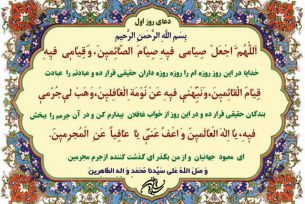 دعای روز اول
بِسْمِ اللَّهِ الرَّحْمنِ الرَّحیمِ
اَللّهُمَّ اجْعَلْ صِیامی فیهِ صِیامَ الصّائِمینَ، وَقِیامی فیهِ
خدایا در این روز روزه ام را روزه روزه داران حقیقی قرار ده و عبادتم را عبادت
قِیامَ الْقائِمینَ، وَنَبِّهْنی فیهِ عَنْ نَوْمَةِ الْغافِلینَ، وَهَبْ لی جُرْمی
بندگان حقیقی قرار ده و در این روز از خواب غافلان بیدارم کن و در آن جرمم را ببخش
فیهِ، یا اِلهَ الْعالَمینَ وَ اعْفُ عَنّی یا عافِیاً عَنِ الْمُجرِمینَ.
ای معبود جهانیان و از من بگذر ای گذشت کننده ازجرم مجرمین.
وَ صَلَّ اللهُ عَلی سَیِّدِنا مُحَمَّدٍ وَ الِهِ الطّاهِرینَ